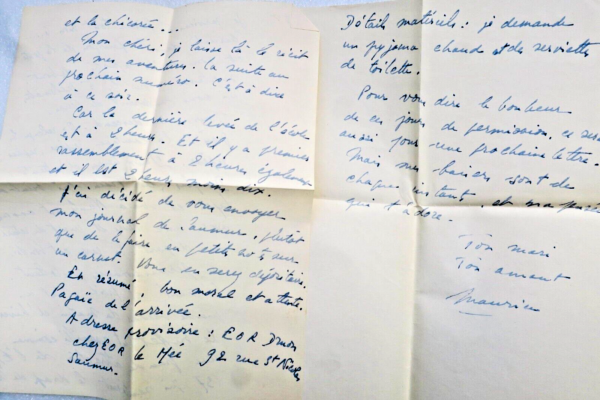 et la chicorée...
Mon chéri, je laisse là le récit
de mes aventures. La suite au
prochain numéro. C'est à dire
à ce soir.
Car la dernière levée de l'école
est à 2 heures. Et il y a premier
rassemblement à 2 heures également
et il est 2 heures moins dix.
J'ai décidé de vous envoyer
mon journal de Saumur, plutôt
que de le faire en petits mots sur
un carnet. Vous en serez dépositaire.
En résumé : bon moral et attente.
Pagaïe de l'arrivée.
Adresse provisoire : EOR Druon
chez EOR le Hée 92 rue St Nicolas
Saumur.
Détails matériels : je demande
un pyjama chaud et des serviettes
de toilette.
Pour vous dire le bonheur
de ces jours de permission, ce sera
aussi pour une prochaine lettre.
Mais mes baisers sont de
chaque instant et ma
qui t'adore.
Ton mari
Ton amant
Maurice